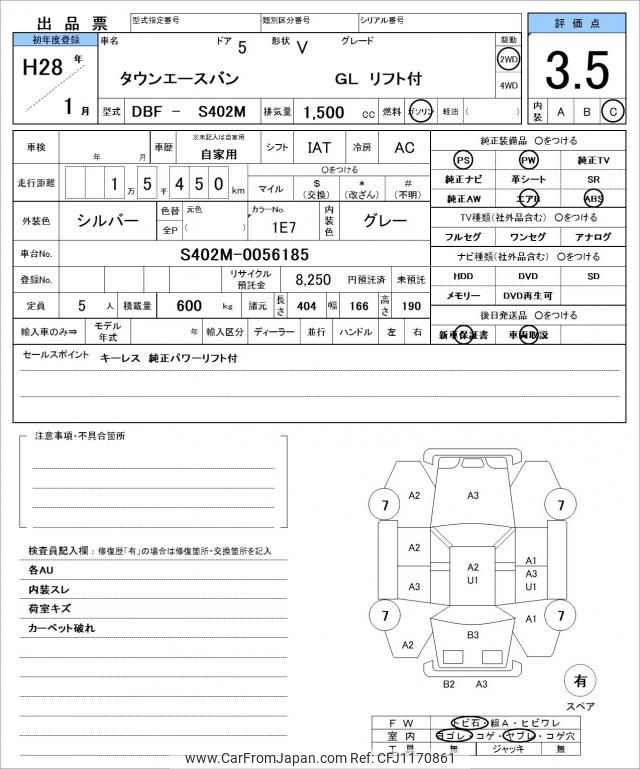 出 品 票 型式指定番号 類別区分番号 シリアル番号 評 価 点
初年度登録 車名 ドア 5 形状 V グレード 駆動
H28 年 タウンエースバン GL リフト付 2WD 3.5
4WD
1 月 型式 DBF － S402M 排気量 1,500 cc 燃料 ガソリン 軽油 ( ) 内装 A B C
車検 年 月 車歴 ※未記入は自家用 自家用 シフト IAT 冷房 AC 純正装備品 〇をつける
PS PW 純正TV
走行距離 1 万 5 千 4 5 0 km 〇をつける
マイル $ (交換) * (改ざん) # (不明) 純正ナビ 革シート SR
純正AW エアB ABS
外装色 シルバー 色替 元色 カラーNo. 内装色 グレー TV種類(社外品含む) 〇をつける
全P ( ) 1E7 フルセグ ワンセグ アナログ
車台No. S402M-0056185 ナビ種類(社外品含む) 〇をつける
登録No. リサイクル預託金 8,250 円預託済 未預託 HDD DVD SD
定員 5 人 積載量 600 kg 諸元 長さ 404 幅 166 高さ 190 メモリー DVD再生可
後日発送品 〇をつける
輸入車のみ⇒ モデル年式 年 輸入区分 ディーラー 並行 ハンドル 左 右 新車保証書 車両取説
セールスポイント キーレス 純正パワーリフト付
注意事項・不具合箇所
検査員記入欄：修復歴「有」の場合は修復箇所・交換箇所を記入
各AU
内装スレ
荷室キズ
カーペット破れ
A2 A3 A2
7 7
A2 A2 U1 A1
A3 A3 U1
7 7
A1
A2 B3
B2 A3
有
スペア
F W トビ石・線A・ヒビワレ
室 内 ヨゴレ・コゲ・ヤブレ・コゲ穴
工 具 無 ジャッキ 無
www.CarFromJapan.com Ref: CFJ1170861